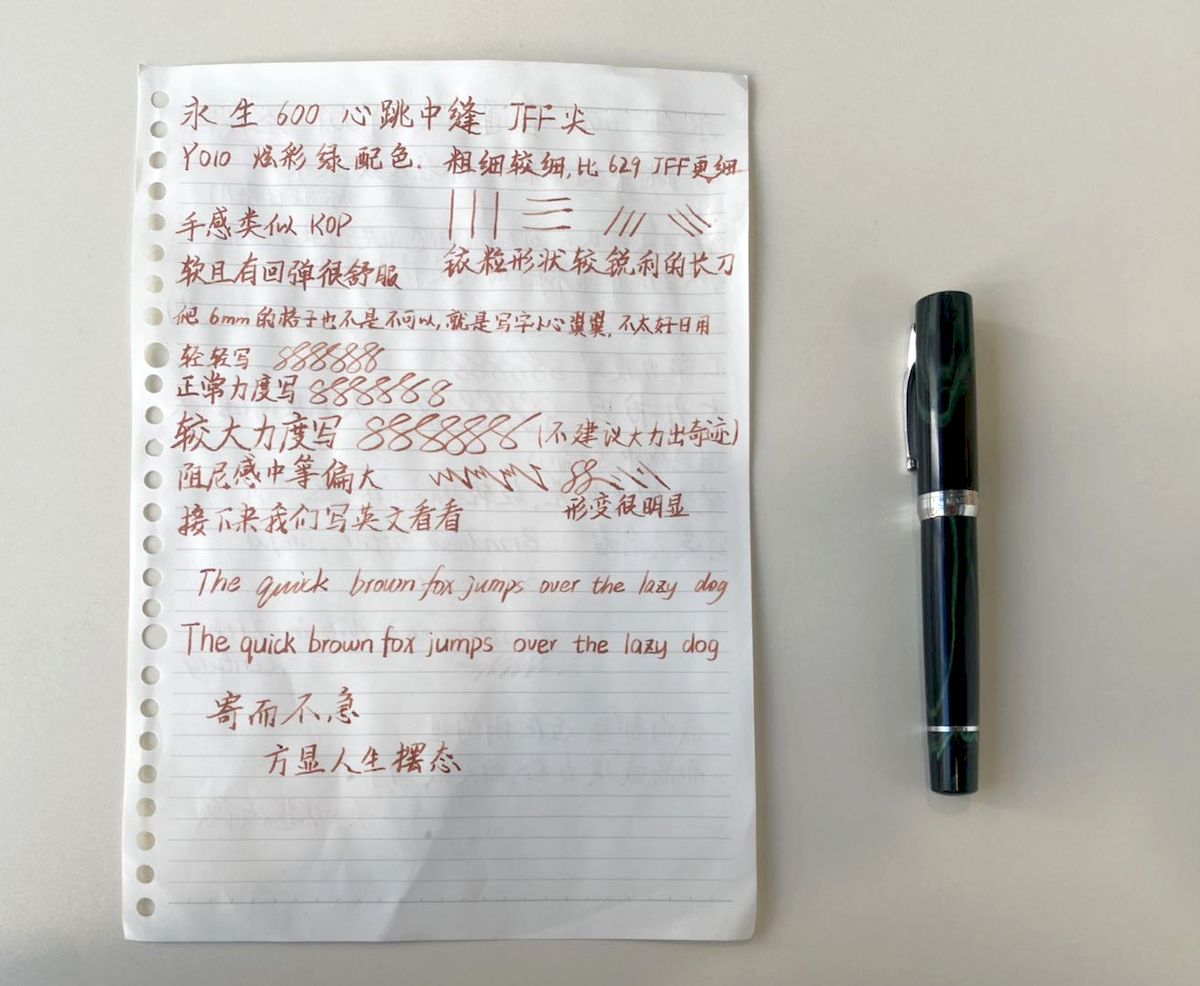 永生 600 心跳中缝 JFF尖
YO10 炫彩绿配色. 粗细较细,比 629 JFF更细
手感类似 KOP
铱粒形状较锐利的长刀
软且有回弹很舒服
把 6mm 的格子也不是不可以,就是写字小心翼翼,不太好日用
轻轻写 8888888
正常力度写 8888868
较大力度写 8888888 (不建议大力出奇迹)
阻尼感中等偏大 88
形变很明显
接下来我们写英文看看
The quick brown fox jumps over the lazy dog
The quick brown fox jumps over the lazy dog
寄而不急
方显人生摆态